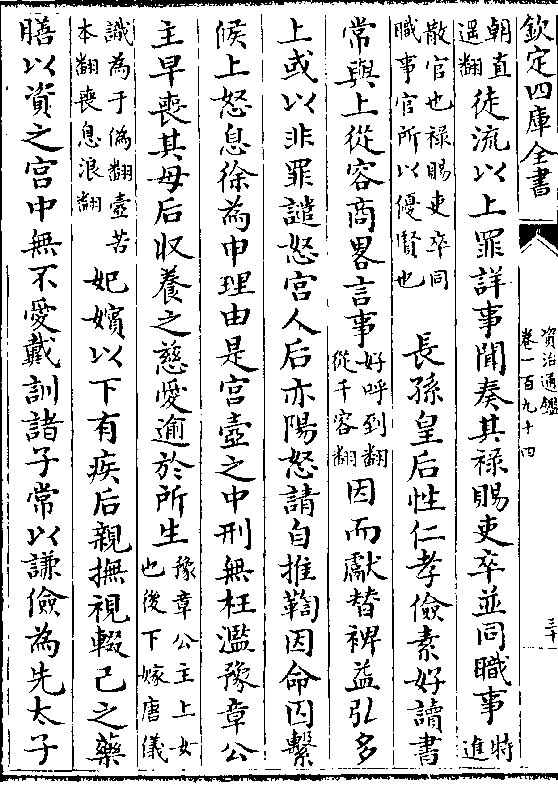 欽定四庫全書
資治通鑑
卷一百九十四
三十
朝直遥翻徒流以上罪詳事聞奏其禄賜吏卒並同職事特進
散官也禄賜吏卒同職事官所以優賢也　長孫皇后性仁孝儉素好讀書
常與上從容商畧言事好呼到翻從千容翻因而獻替裨益弘多
上或以非罪譴怒宫人后亦陽怒請自推鞫因命囚繫
候上怒息徐為申理由是宫壼之中刑無枉濫豫章公
主早喪其母后収養之慈愛逾於所生豫章公主上女也後下嫁唐儀
識為于偽翻壼苦本翻喪息浪翻妃嬪以下有疾后親撫視輟己之藥
膳以資之宫中無不愛戴訓諸子常以謙儉為先太子